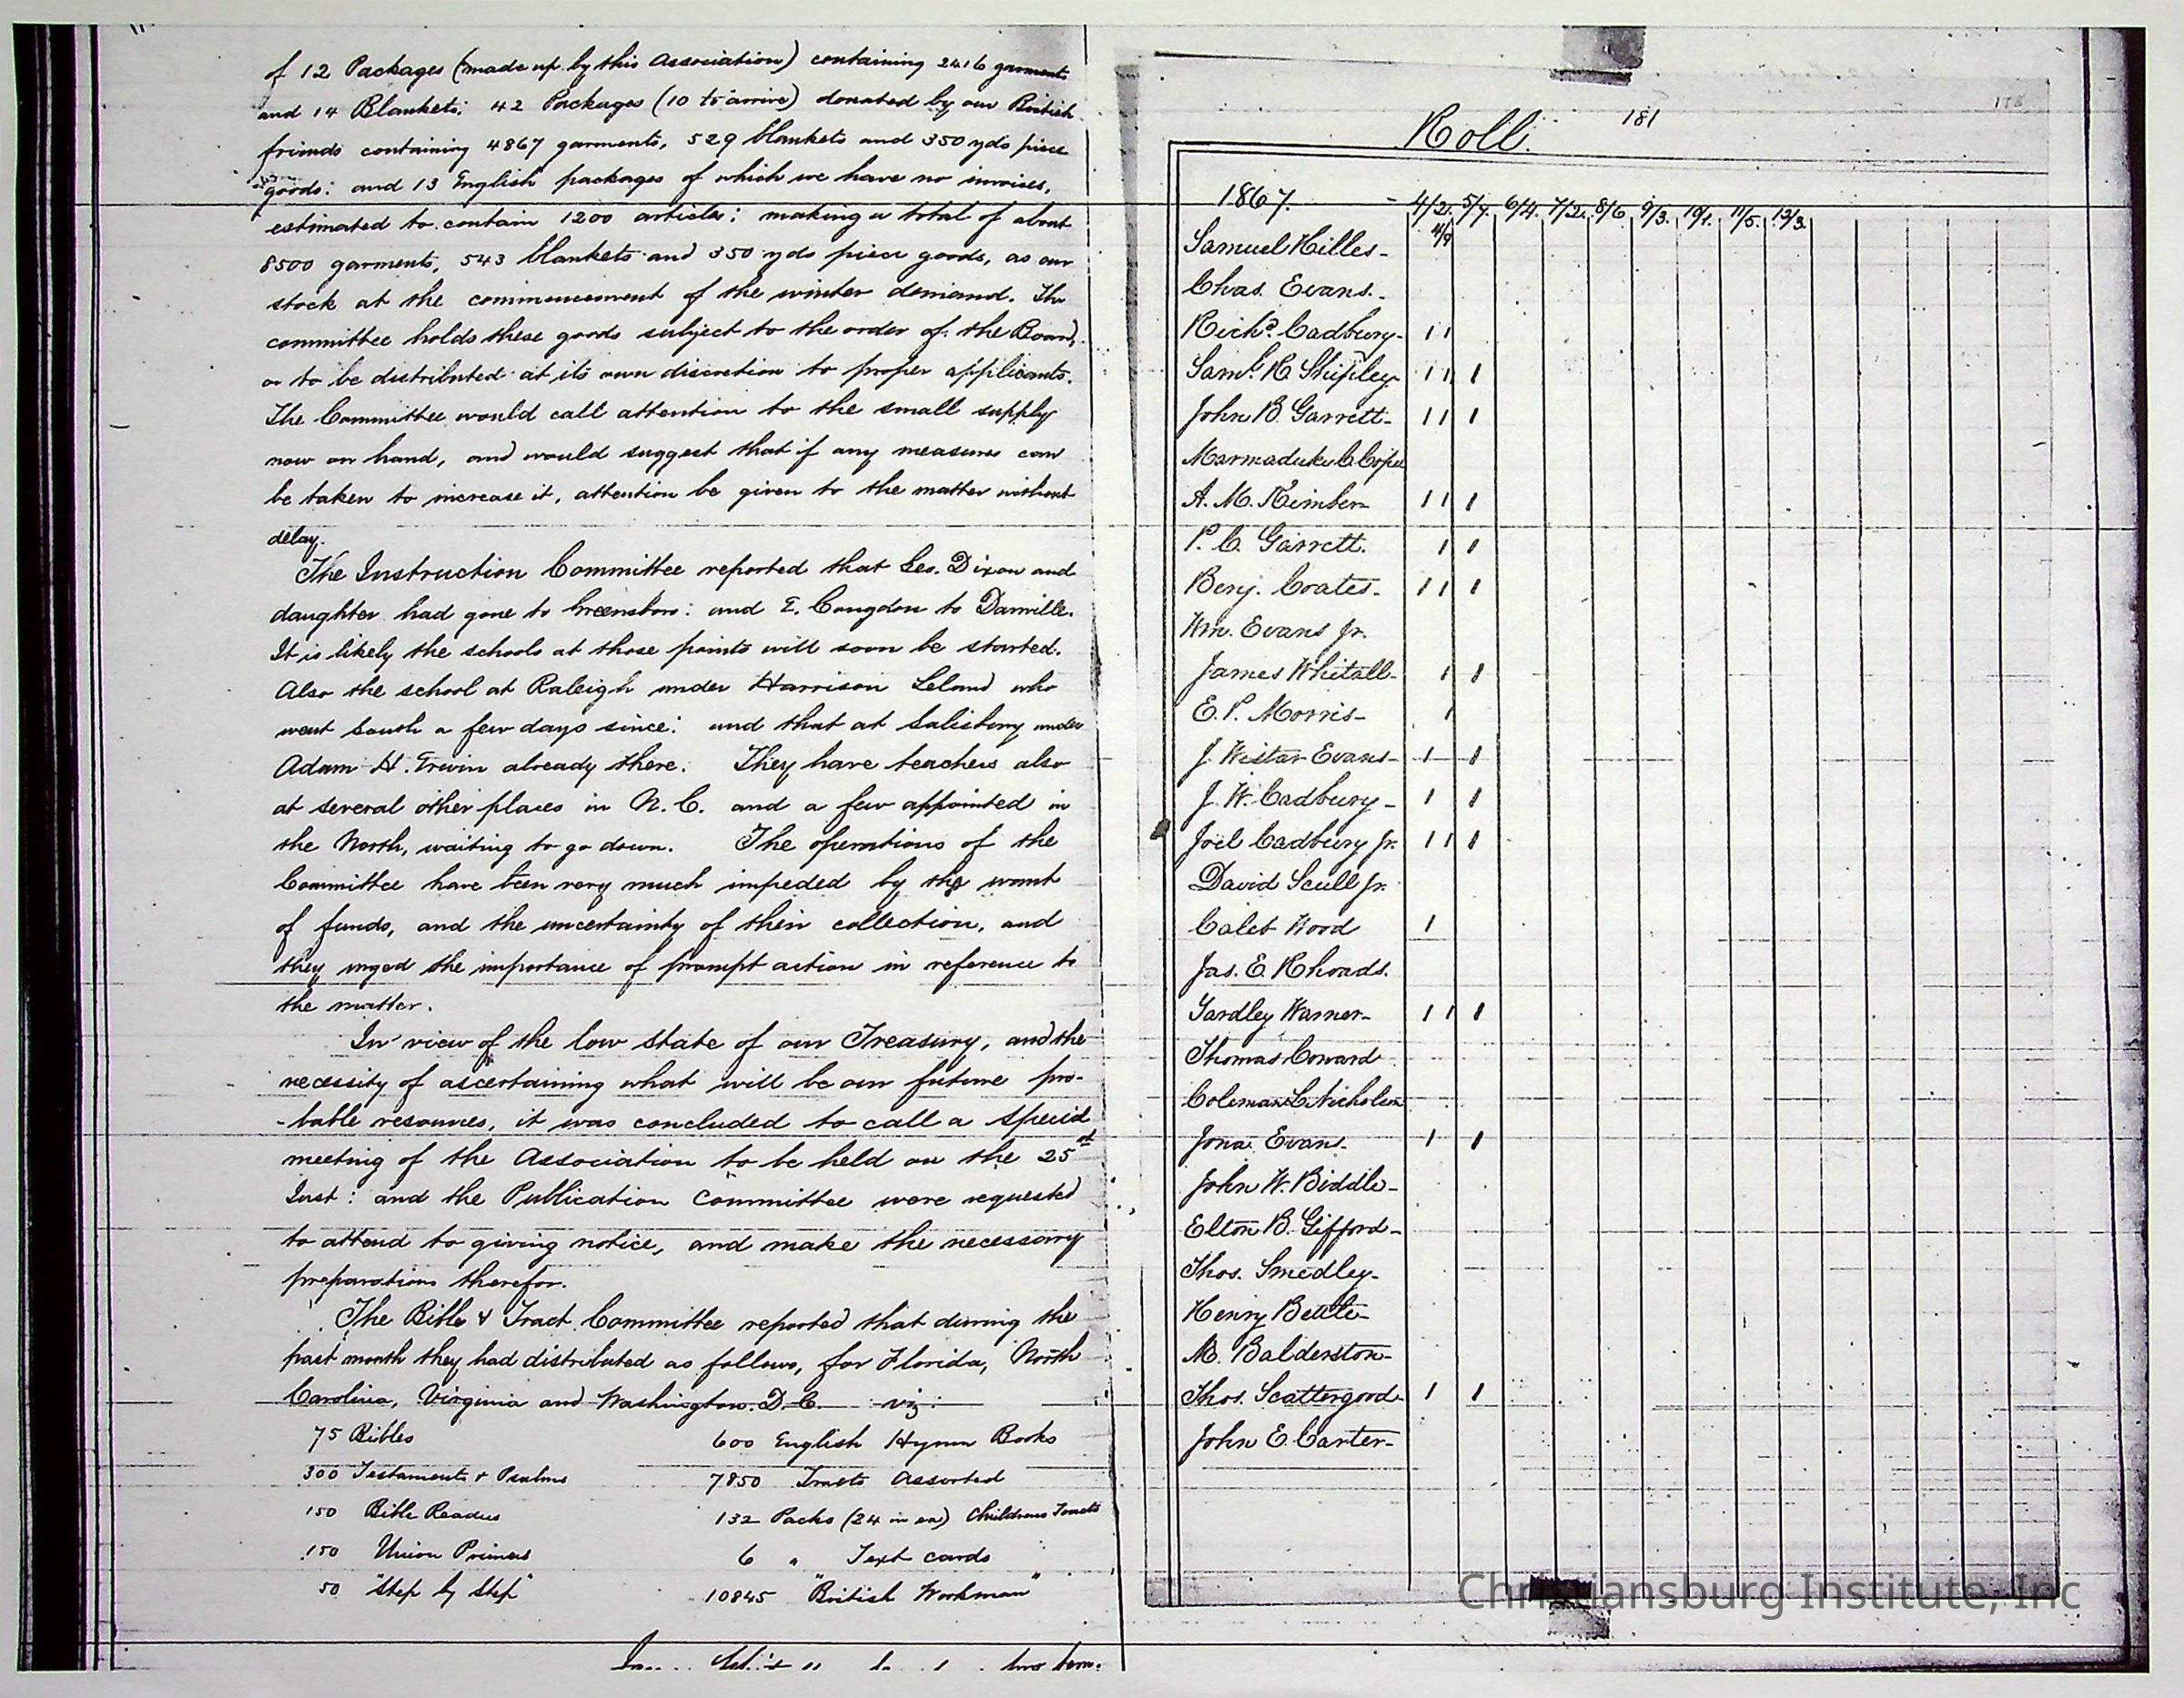 of 12 Packages (made up by this Association) containing 2416 garments
and 14 Blankets; 42 Packages (10 to arrive) donated by our British
friends containing 4867 garments, 529 blankets and 350 yds piece
goods: and 13 English packages of which we have no invoices,
estimated to contain 1200 articles; making a total of about
8500 garments, 543 blankets and 350 yds piece goods, as our
stock at the commencement of the winter demand. The
committee holds these goods subject to the order of the Board,
or to be distributed at its own discretion to proper applicants.
The Committee would call attention to the small supply
now on hand, and would suggest that if any measures can
be taken to increase it, attention be given to the matter without
delay.
The Instruction Committee reported that Geo. Dixon and
daughter had gone to Greensboro: and E. Congdon to Danville.
It is likely the schools at those points will soon be started.
Also the school at Raleigh under Harrison Leland who
went South a few days since: and that at Salisbury under
Adam H. Erwin already there. They have teachers also
at several other places in N. C. and a few appointed in
the North, waiting to go down. The operations of the
Committee have been very much impeded by the want
of funds, and the uncertainty of their collection, and
they urged the importance of prompt action in reference to
the matter.
In view of the low state of our Treasury, and the
necessity of ascertaining what will be our future pro-
-bable resources, it was concluded to call a special
meeting of the Association to be held on the 25th
Inst: and the Publication Committee were requested
to attend to giving notice, and make the necessary
preparations therefor.
The Bible & Tract Committee reported that during the
past month they had distributed as follows, for Florida, North
Carolina, Virginia and Washington. D. C. viz:
75 Bibles 600 English Hymn Books
300 Testaments & Psalms 7850 Tracts Assorted
150 Bible Readers 132 Packs (24 in ea) Childrens Tracts
150 Union Primers 6 " Text cards
50 "Step by Step" 10845 "British Workman"
Roll. 181
1867. - 4/2. 5/7. 6/4. 7/2. 8/6. 9/3. 10/1. 11/5. 12/3.
Samuel Hilles - 4/9
Chas. Evans. -
Richd. Cadbury - 1 1
Saml. R Shipley 1 1 1
John B. Garrett - 1 1 1
Marmaduke C Cope
A. M. Kimber - 1 1 1
P. C. Garrett. 1 1
Benj. Coates - 1 1 1
Wm. Evans Jr.
James Whitall - 1 1
E. P. Morris - 1
J. Wistar Evans - 1 1
J. W. Cadbury - 1 1
Joel Cadbury Jr. 1 1 1
David Scull Jr.
Caleb Wood 1
Jas. E. Rhoads.
Yardley Warner - 1 1 1
Thomas Conard
Coleman L Nicholson
Jona. Evans. 1 1
John W. Biddle -
Elton B. Gifford -
Thos. Smedley -
Henry Bettle -
M. Balderston -
Thos. Scattergood - 1 1
John E. Carter -
Christiansburg Institute, Inc